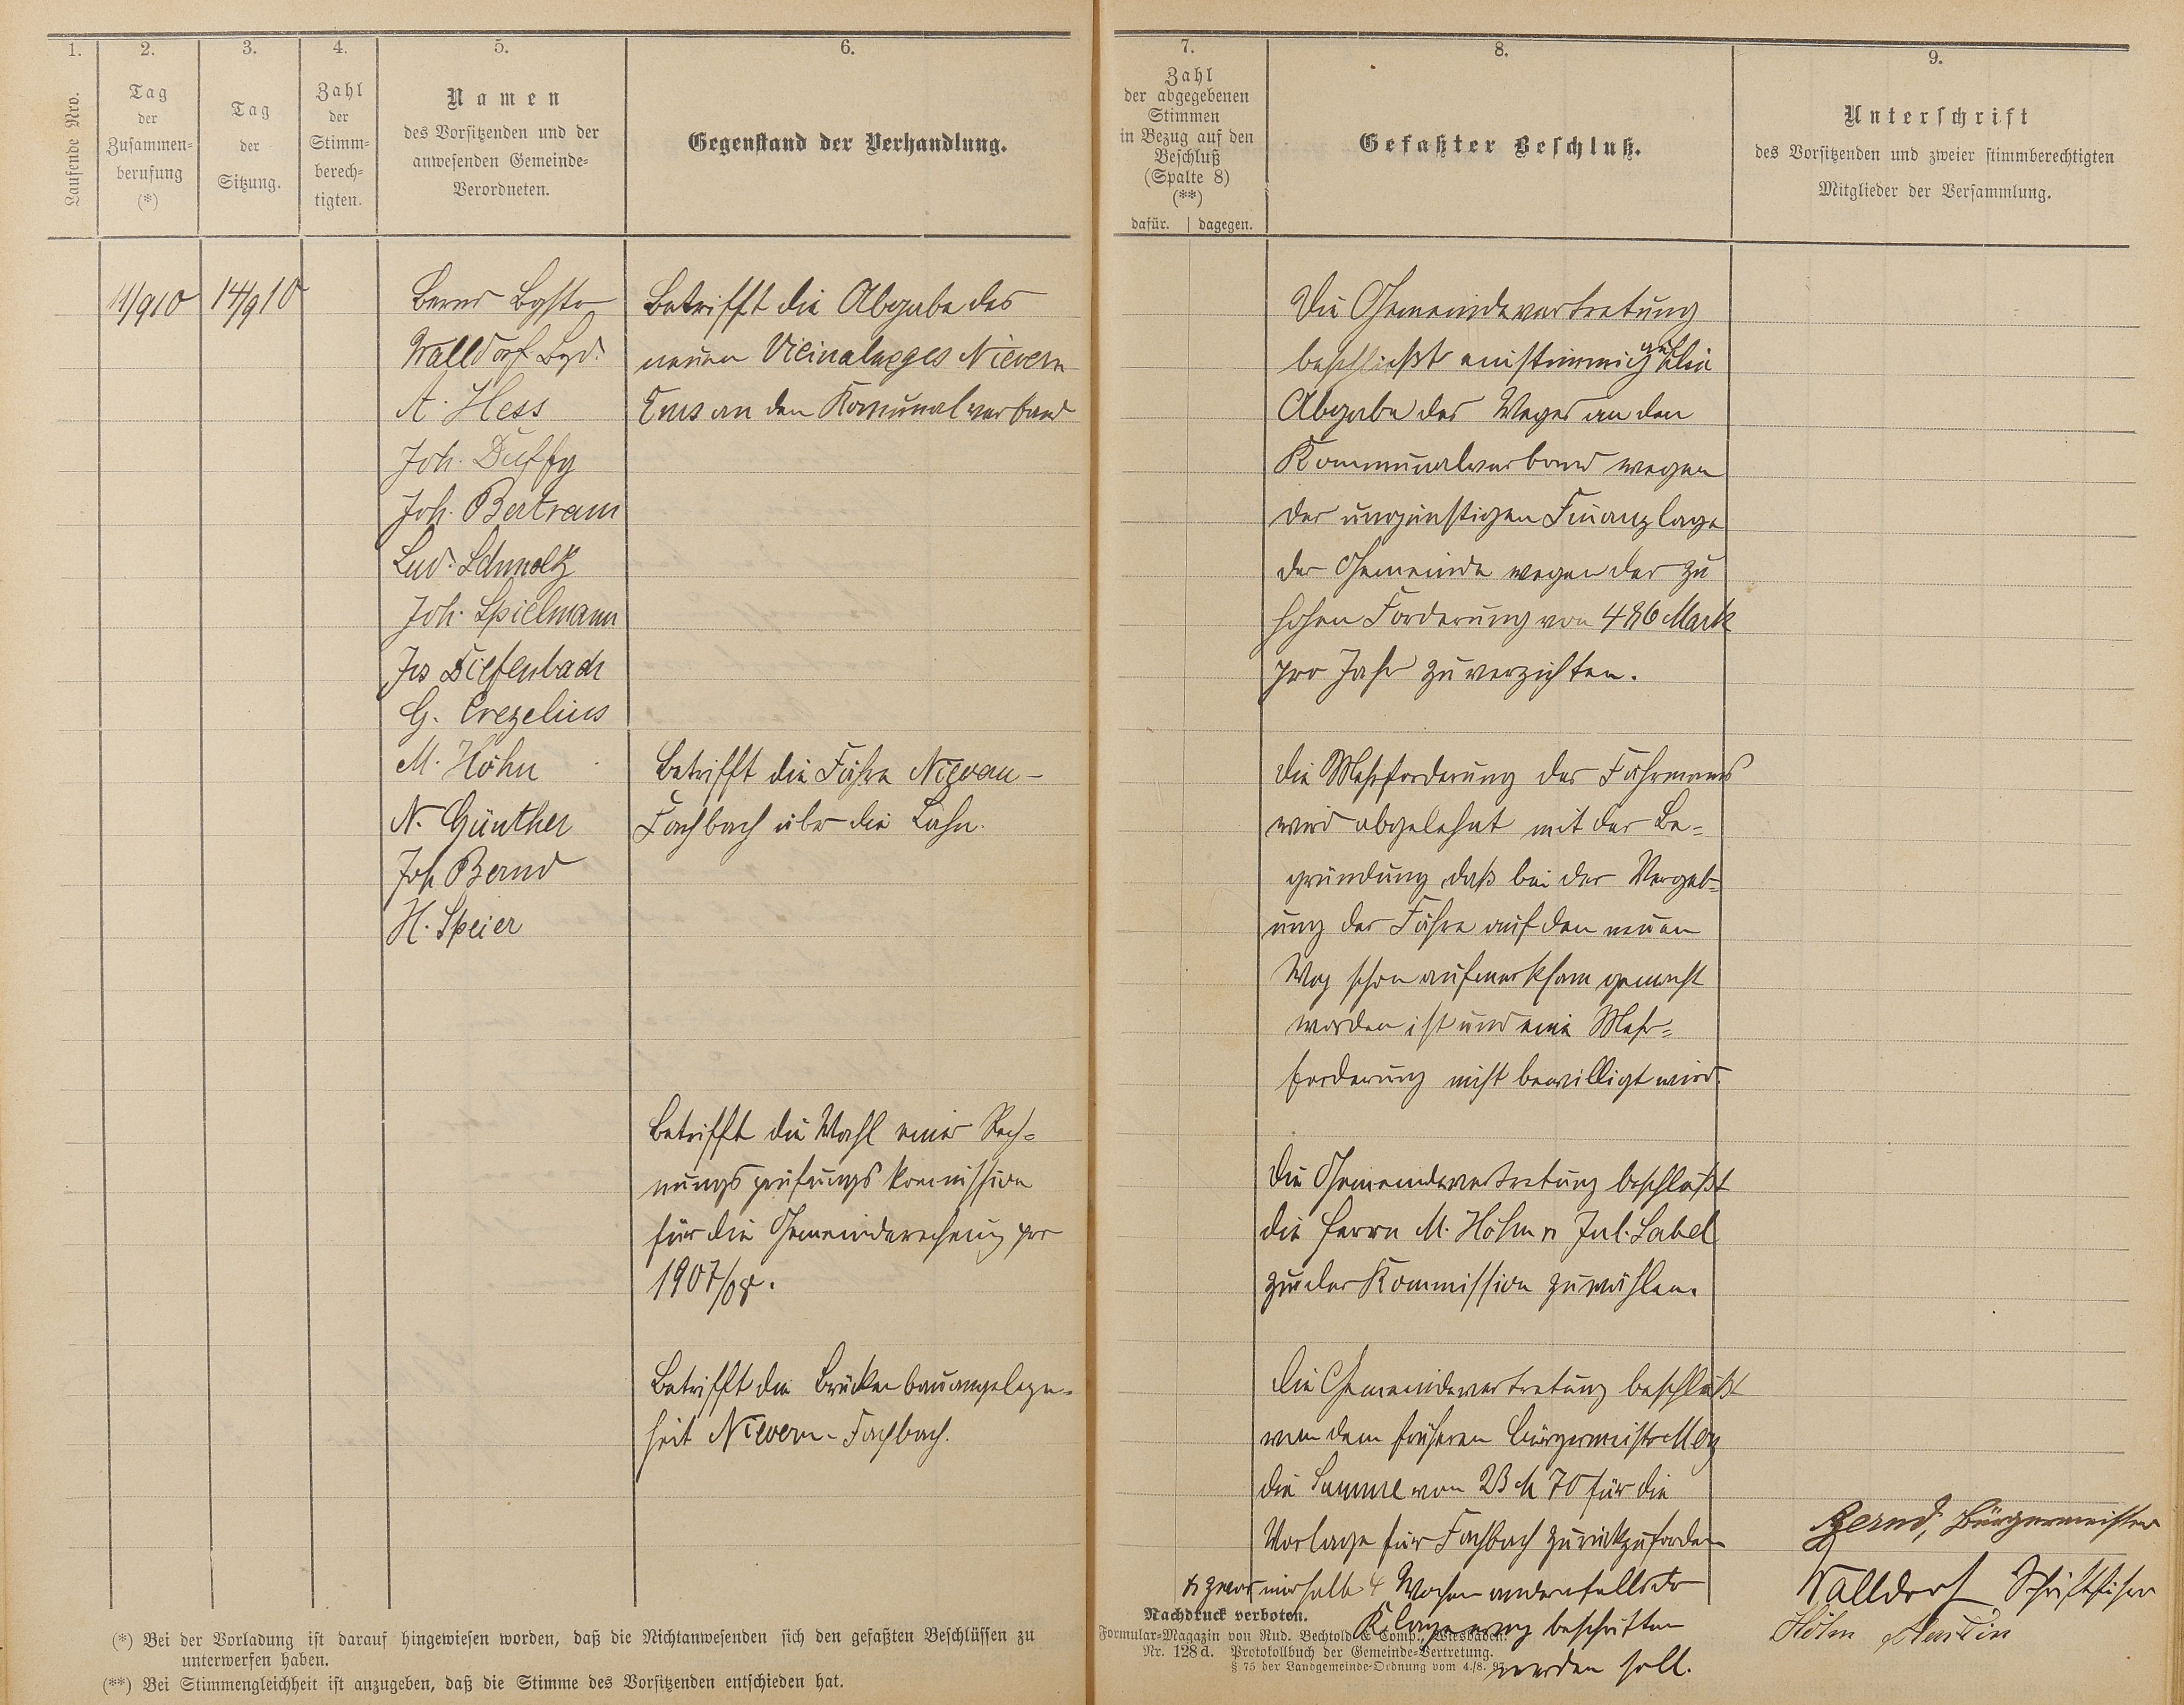 1.
2.
3.
4.
5.
6.
Laufende Nro.
Tag
der
Zusammen-
berufung
(*)
Tag
der
Sitzung.
Zahl
der
Stimm-
berech-
tigten.
Namen
des Vorsitzenden und der
anwesenden Gemeinde-
Verordneten.
Gegenstand der Verhandlung.
11/9 10
14/9 10
Bernd Bgstr
Walldorf Bgd.
A. Hess
Joh. Duffy
Joh. Bertram
Lud. Schmolz
Joh. Spielmann
Jos Diefenbach
G. Crezelius
M. Höhn
N. Günther
Joh Bernd
H. Speier
Betrifft die Abgabe des
neuen Vicinalweges Nievern
Ems an den Komunalverband
Betrifft die Fähre Nievern-
Fachbach über die Lahn.
Betrifft die Wahl einer Rech-
nungsprüfungskommission
für die Gemeinderechnung pro
1907/08.
Betrifft die Brückenbauangelegen-
heit Nievern-Fachbach.
(*) Bei der Vorladung ist darauf hingewiesen worden, daß die Nichtanwesenden sich den gefaßten Beschlüssen zu
unterwerfen haben.
(**) Bei Stimmengleichheit ist anzugeben, daß die Stimme des Vorsitzenden entschieden hat.
7.
8.
9.
Zahl
der abgegebenen
Stimmen
in Bezug auf den
Beschluß
(Spalte 8)
(**)
dafür. | dagegen.
Gefaßter Beschluß.
Unterschrift
des Vorsitzenden und zweier stimmberechtigten
Mitglieder der Versammlung.
Die Gemeindevertretung
beschließt einstimmig auf die
Abgabe des Weges an den
Kommunalverband wegen
der ungünstigen Finanzlage
der Gemeinde wegen der zu
hohen Forderung von 486 Mark
pro Jahr zu verzichten.
Die Mehrforderung des Fährmanns
wird abgelehnt mit der Be-
gründung, daß bei der Vergeb-
ung der Fähre auf den neuen
Weg schon aufmerksam gemacht
worden ist und eine Mehr-
forderung nicht bewilligt wird.
Die Gemeindevertretung beschließt
die Herrn M. Höhn u Jul. Sabel
zu der Kommission zu wählen.
Die Gemeindevertretung beschließt
von dem früheren Bürgermeister
die Summe von 23 M 70 für die
Vorlage für Fachbach zurückzufordern
u zwar innerhalb 4 Wochen andernfalls der
Klageweg beschritten
werden soll.
Bernd, Bürgermeister
Walldorf Schriftführer
Höhn Martin
Nachdruck verboten.
Formular-Magazin von Rud. Bechtold & Comp., Wiesbaden.
Nr. 128d. Protokollbuch der Gemeinde-Vertretung.
§ 75 der Landgemeinde-Ordnung vom 4./8. 97